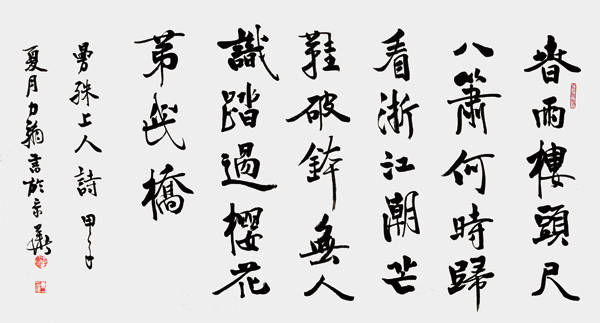 春雨樓頭尺
八簫何時歸
看浙江潮芒
鞋破鉢無人
識踏過櫻花
第幾橋
曼殊上人詩 甲午
夏月力翰書於京華